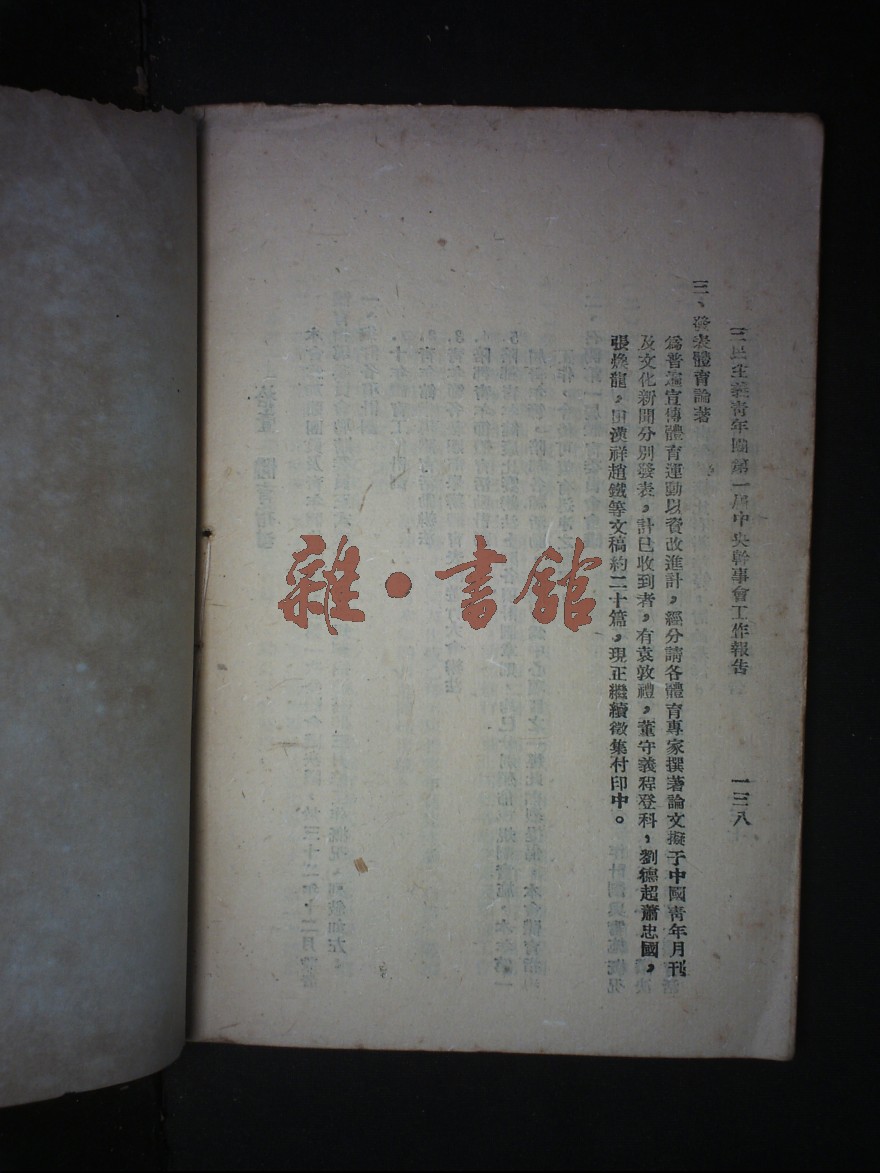 三民主義靑年團第一屆中央幹事會工作報告 一三八
三、發表體育論著
爲普遍宣傳體育運動以資改進計，經分請各體育專家撰著論文擬于中國靑年月刊
及文化新聞分別發表，計已收到者，有袁敦禮，董守義程登科，劉德超蕭忠國，
張煥龍，田漢祥趙鐵等文稿約二十篇，現正繼續徵集付印中。
雜·書館